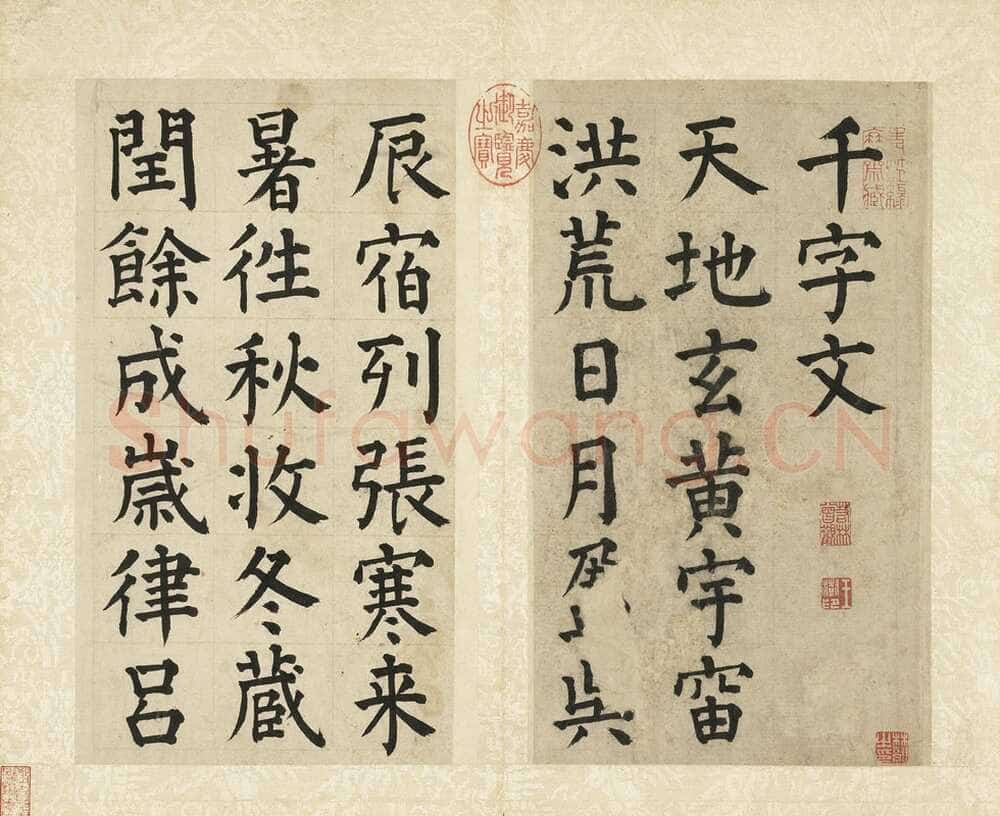 千字文
天地玄黄宇宙
洪荒日月
辰宿列張寒来
暑徃秋收冬蔵
閏餘成歲律呂
嘉慶御覽之寶
Shufawang.CN